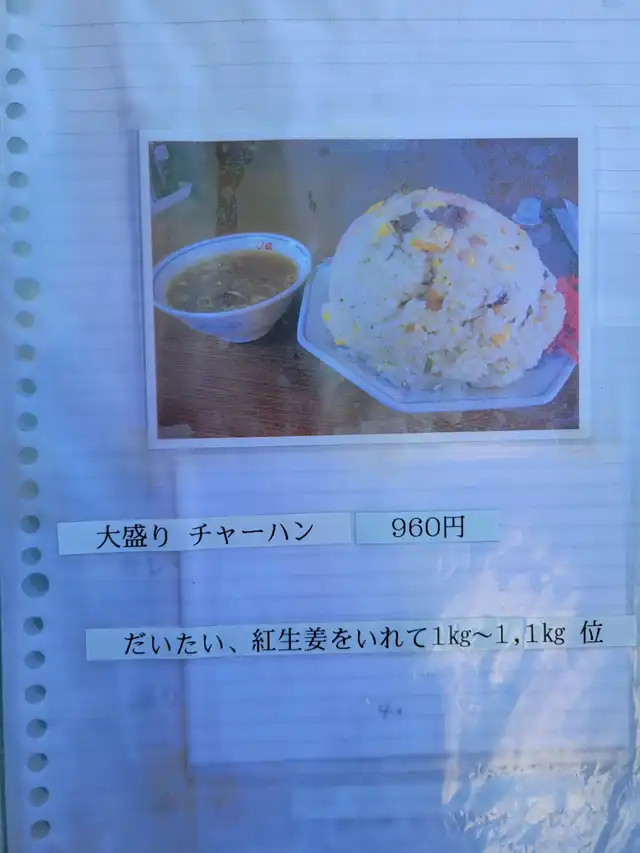 大盛り チャーハン 960円
だいたい、紅生姜をいれて1㎏～1,1㎏ 位